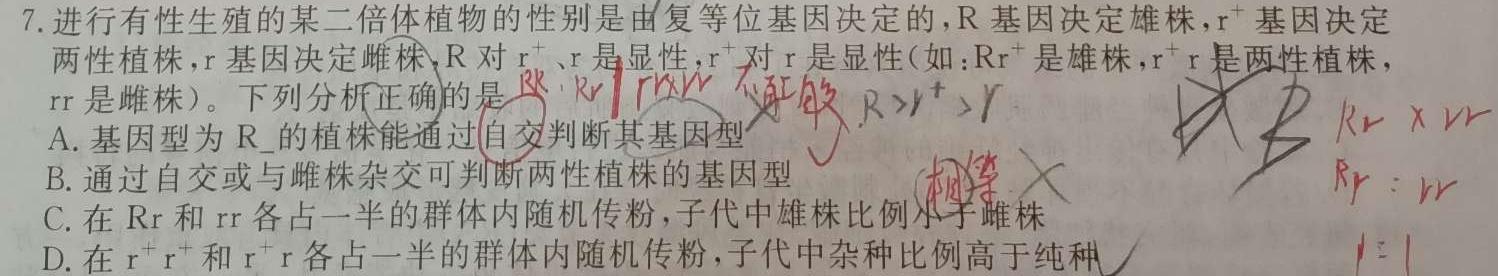 7.进行有性生殖的某二倍体植物的性别是由复等位基因决定的,R 基因决定雄株,r⁺ 基因决定
两性植株,r 基因决定雌株,R 对 r⁺、r 是显性,r⁺ 对 r 是显性(如:Rr⁺ 是雄株,r⁺r 是两性植株,
rr 是雌株)。下列分析正确的是
R>r⁺>r
Rr × rr
A. 基因型为 R_的植株能通过自交判断其基因型
B. 通过自交或与雌株杂交可判断两性植株的基因型
相等 ×
Rr : rr
C. 在 Rr 和 rr 各占一半的群体内随机传粉,子代中雄株比例小于雌株
D. 在 r⁺r⁺ 和 r⁺r 各占一半的群体内随机传粉,子代中杂种比例高于纯种
1=1